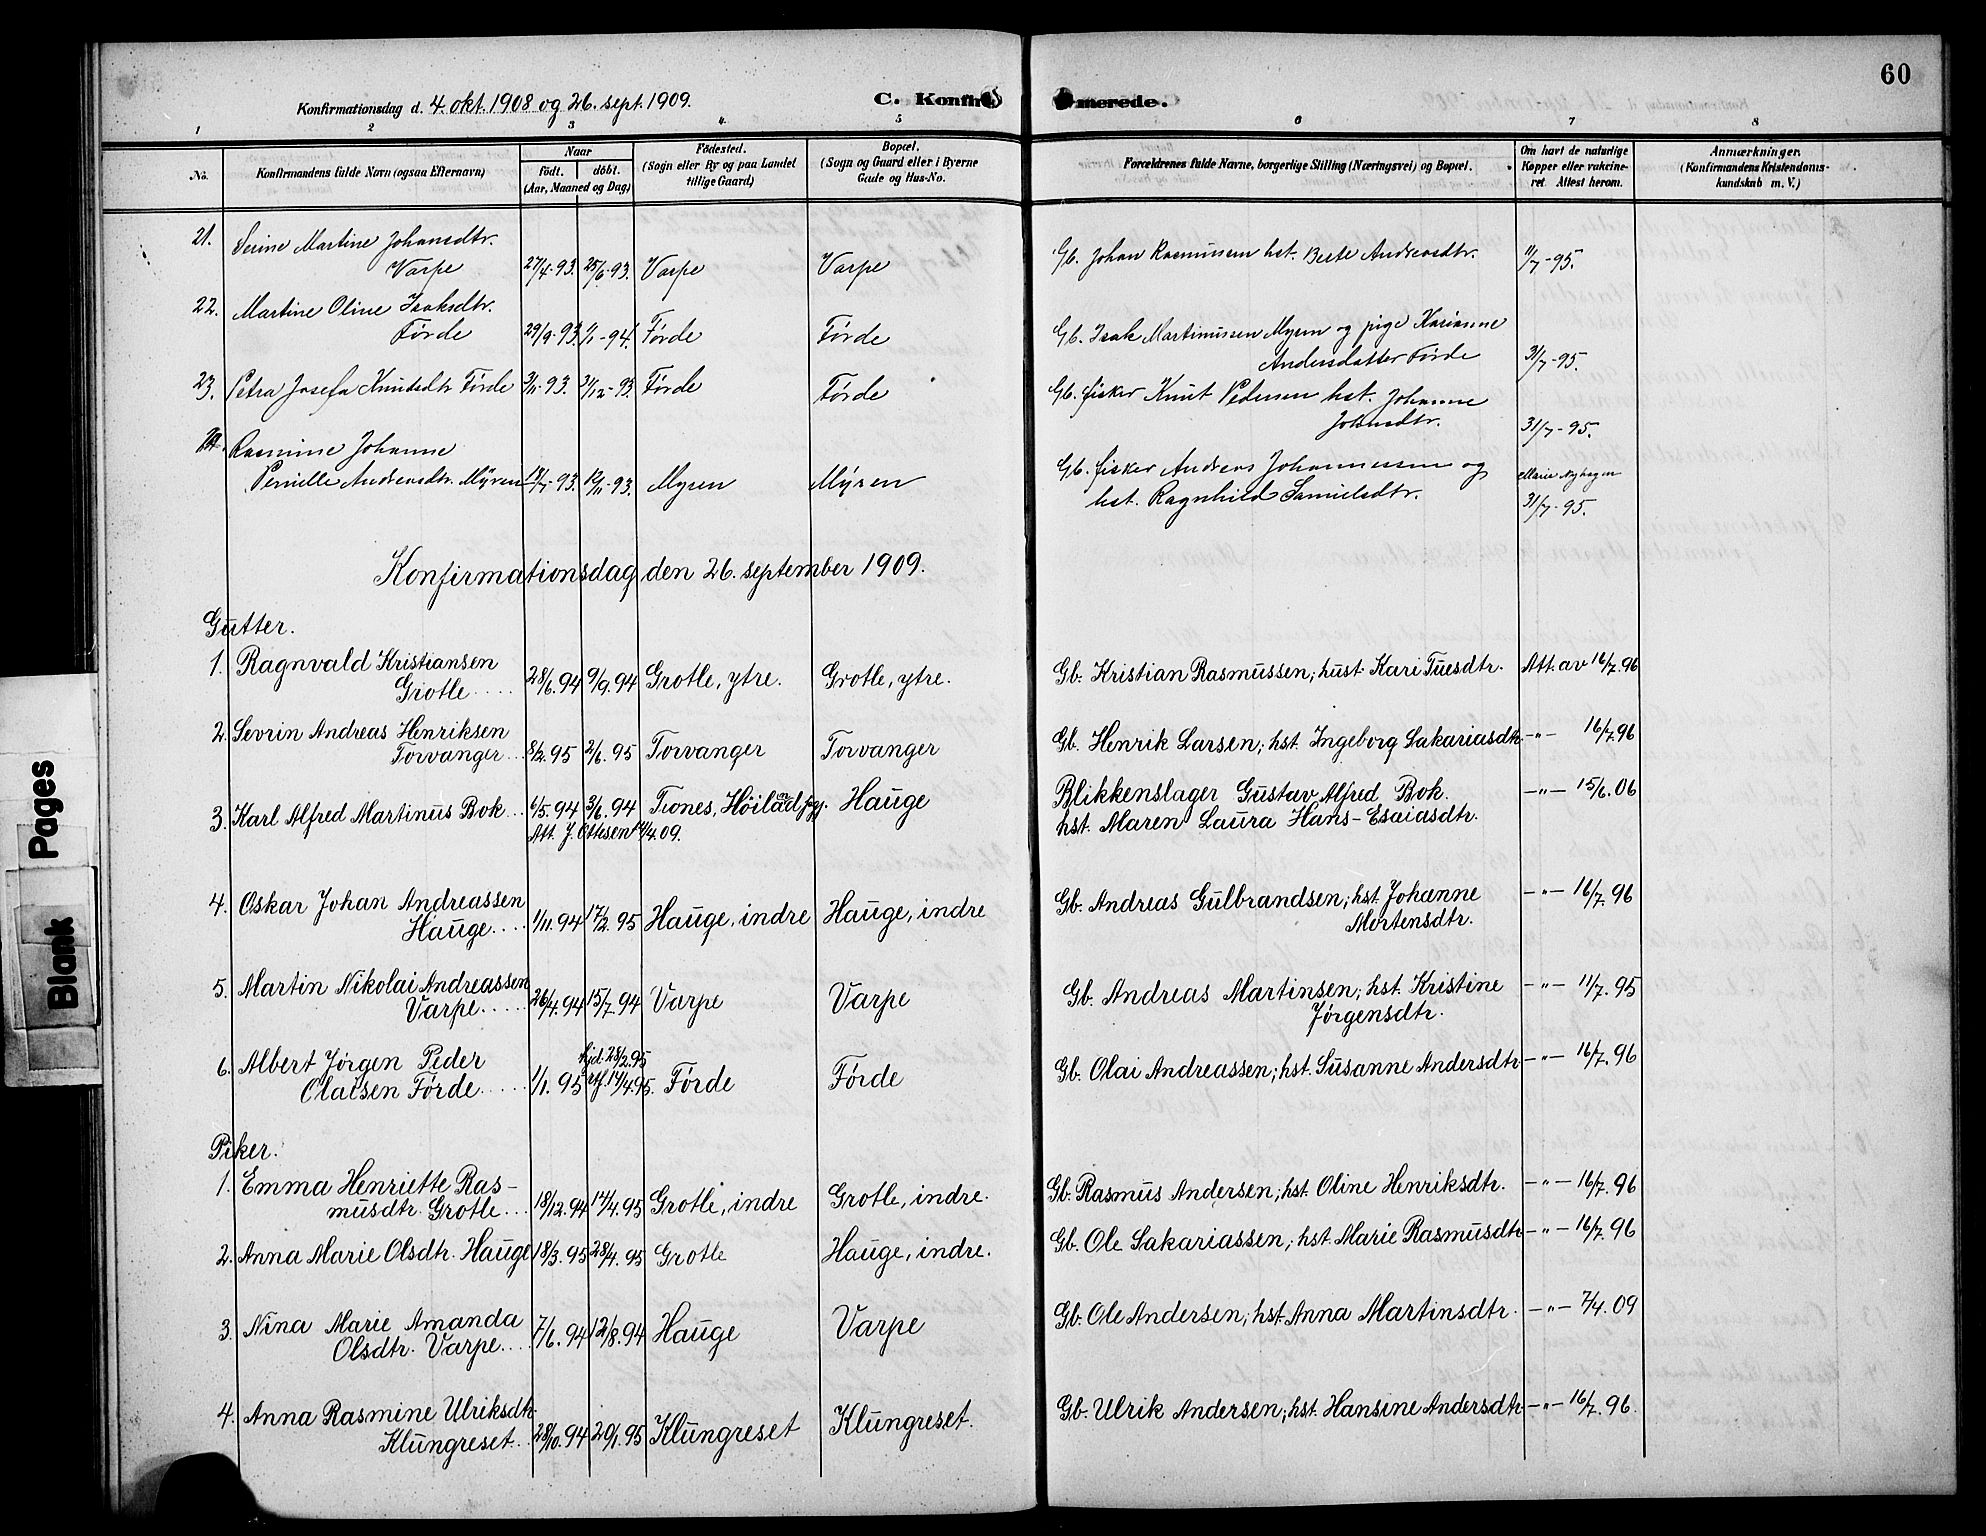 60
Konfirmationsdag d. 4. okt. 1908 og 26. sept. 1909.
C. Konfirmerede.
1 2 3 4 5 6 7 8
No.
Konfirmandens fulde Navn (ogsaa Efternavn)
Naar
født. døbt.
(Aar, Maaned og Dag)
Fødested.
(Sogn eller By og paa Landet
tillige Gaard)
Bopæl.
(Sogn og Gaard eller i Byerne
Gade og Hus-No.
Forældrenes fulde Navne, borgerlige Stilling (Næringsvei) og Bopæl.
Om havt de naturlige
Kopper eller vakcine-
ret. Attest herom.
Anmærkninger.
(Konfirmandens Kristendoms-
kundskab m. V.)
21. Serine Martine Johansdtr.
Varpe 27/4-93. 25/6-93. Varpe Varpe Gb. Johan Rasmussen hst. Berte Andreasdtr. 11/7-95.
22. Martine Oline Isaksdtr.
Førde 29/9-93. 1/1-94. Førde Førde Gb. Isak Martinussen Myren og pige Karianne
Andersdatter Førde 31/7-95.
23. Petra Josefa Knutsdtr Førde 3/11-93. 31/12-93. Førde Førde Gb. fisker Knut Pedersen hst. Johanne
Johnsdtr. 31/7-95.
24. Rasmine Johanne
Pernille Andreasdtr. Mÿren 93. 19/11-93. Myren Mÿren Gb. fisker Andreas Johannessen og
hst. Ragnhild Samuelsdtr. Marie Nyhagen
31/7-95.
Konfirmationsdag den 26. september 1909.
Gutter.
1. Ragnvald Kristiansen
Grotle..... 28/6.94 9/9.94 Grotle, ytre. Grotle, ytre. Gb. Kristian Rasmussen; hust. Kari Tuesdtr. Att. av 16/7.96
2. Sevrin Andreas Henriksen
Torvanger... 8/2.95 2/6.95 Torvanger Torvanger Gb. Henrik Larsen; hst. Ingeborg Sakariasdtr. -"- 16/7.96
3. Karl Alfred Martinus Bok... 6/5.94 3/6.94 Trones, Høiland pgj. Hauge Blikkenslager Gustav Alfred Bok. -"- 15/6.06
Att. J. Ottesen 14/4.09. hst. Maren Laura Hans-Esaiasdtr.
4. Oskar Johan Andreassen
Hauge.... 1/11.94 17/2.95 Hauge, indre Hauge, indre Gb. Andreas Gulbrandsen; hst. Johanne
Mortensdtr. -"- 16/7.96
5. Martin Nikolai Andreassen
Varpe..... 26/4.94 15/7.94 Varpe Varpe Gb. Andreas Martinsen; hst. Kristine
Jørgensdtr. -"- 11/7.95
6. Albert Jørgen Peder
Olaisen Førde..... 1/1.95 hjd. 28/2.95 stf. 14/4.95. Førde Førde Gb. Olai Andreassen; hst. Susanne Andersdtr -"- 16/7.96
Piker.
1. Emma Henriette Ras-
musdtr. Grotle... 18/12.94 14/4.95 Grotle, indre Grotle, indre. Gb. Rasmus Andersen; hst. Oline Henriksdtr. -"- 16/7.96
2. Anna Marie Olsdtr. Hauge 18/3.95 28/4.95 Grotle Hauge, indre. Gb. Ole Sakariassen; hst. Marie Rasmusdtr -"- 16/7.96
3. Nina Marie Amanda
Olsdtr. Varpe.... 7/6.94 12/8.94 Hauge Varpe Gb. Ole Andersen; hst. Anna Martinsdtr. -"- 7/4.09
4. Anna Rasmine Ulriksdtr.
Klungreset.. 28/10.94 20/1.95 Klungreset Klungreset. Gb. Ulrik Andersen; hst. Hansine Andersdtr -"- 16/7.96.
Blank Pages